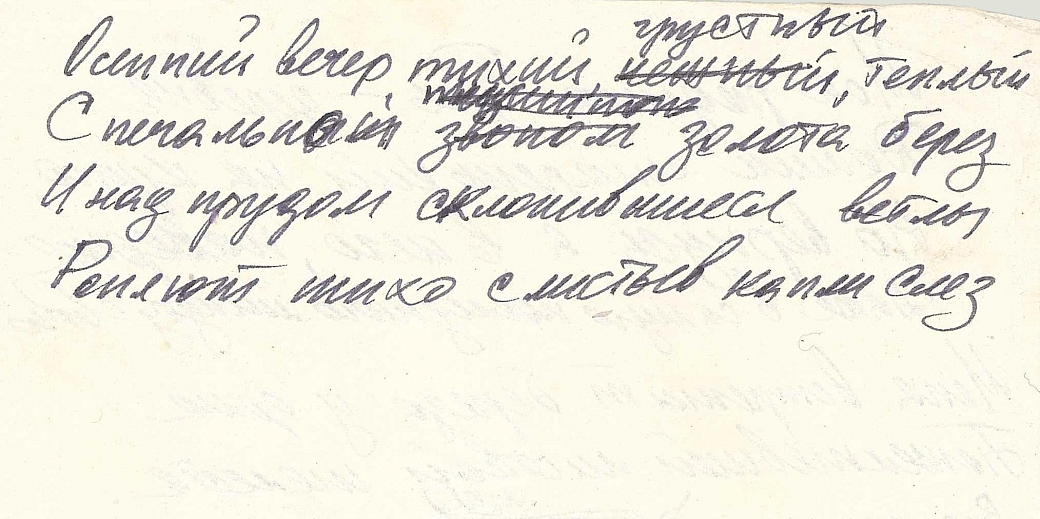 грустный
Осенний вечер, тихий, нежный, теплый
С печальным звоном золота берез
И над прудом склонившиеся ветлы
Роняют тихо с листьев капли слез